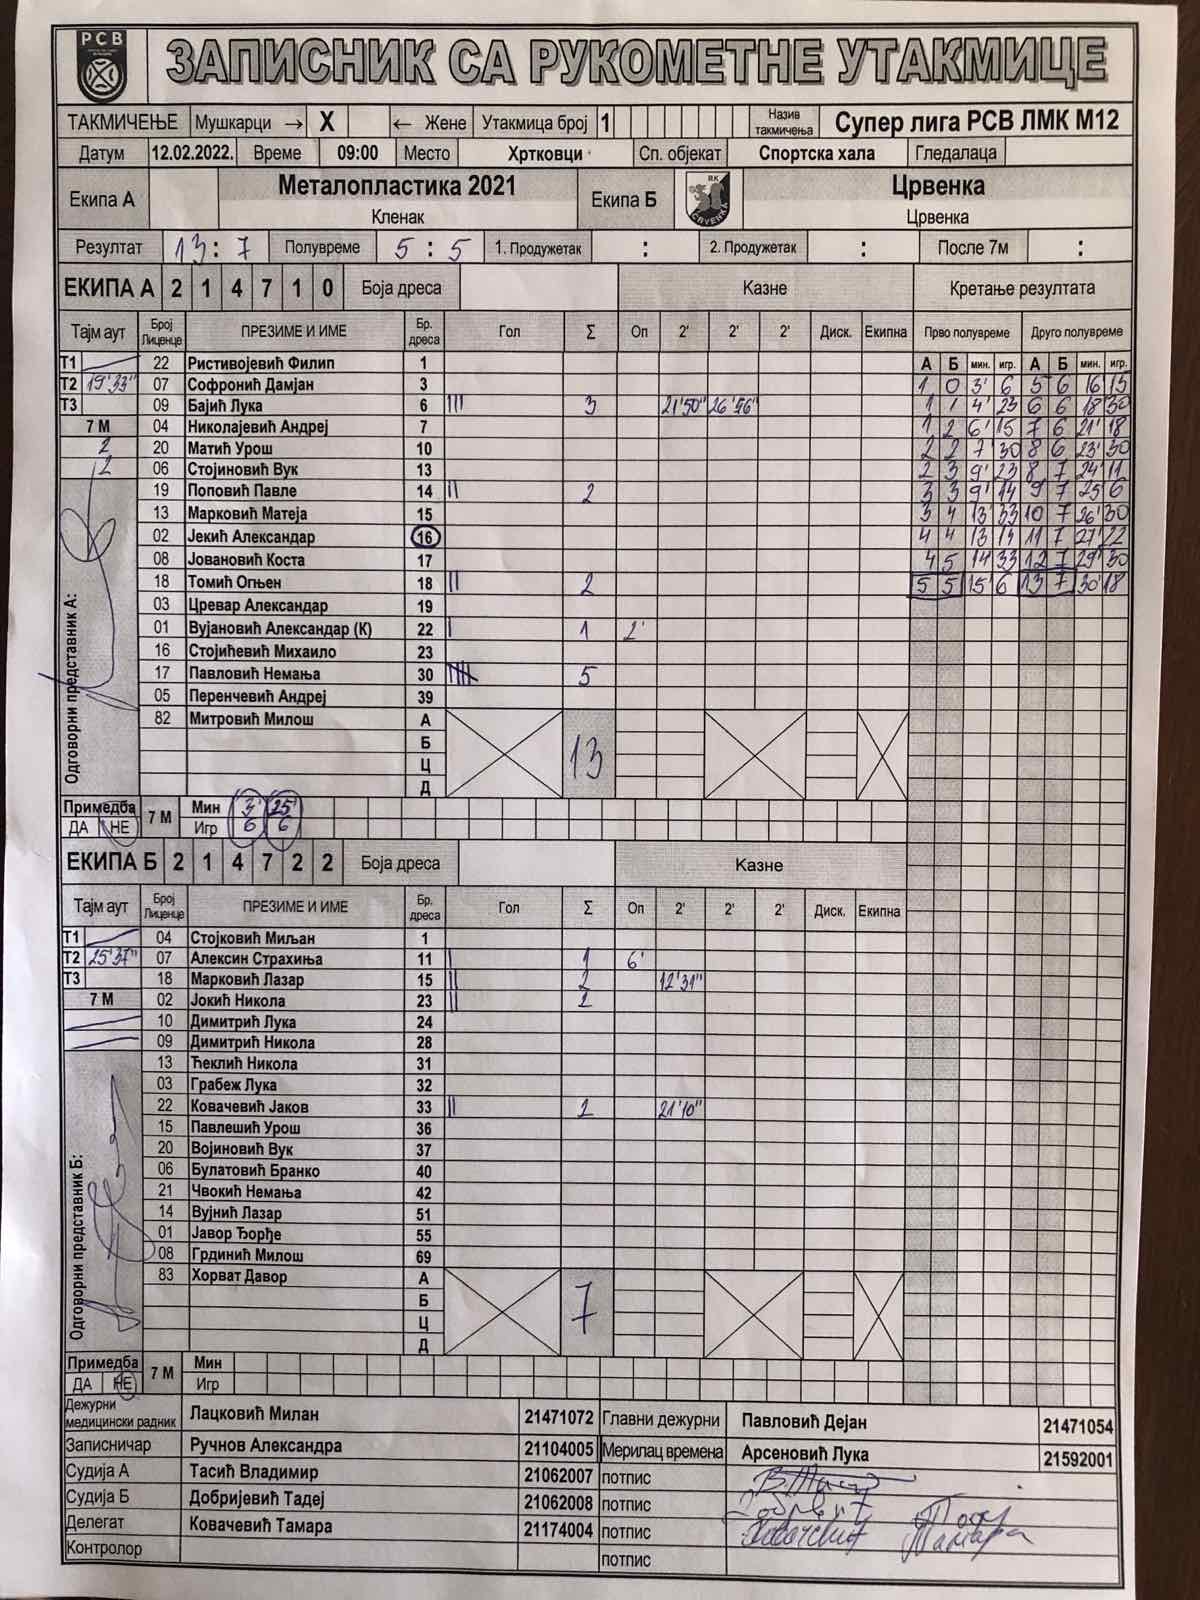 РСВ
ЗАПИСНИК СА РУКОМЕТНЕ УТАКМИЦЕ
ТАКМИЧЕЊЕ Мушкарци → X ← Жене Утакмица број 1 Назив такмичења Супер лига РСВ ЛМК М12
Датум 12.02.2022. Време 09:00 Место Хртковци Сп. објекат Спортска хала Гледалаца
Екипа А Металопластика 2021 Екипа Б РК ЦРВЕНКА Црвенка
Кленак Црвенка
Резултат 13 : 7 Полувреме 5 : 5 1. Продужетак : 2. Продужетак : После 7м :
ЕКИПА А 2 1 4 7 1 0 Боја дреса Казне Кретање резултата
Тајм аут Број Лиценце ПРЕЗИМЕ И ИМЕ Бр. дреса Гол Σ Оп 2' 2' 2' Диск. Екипна Прво полувреме Друго полувреме
Т1 22 Ристивојевић Филип 1 А Б мин. игр. А Б мин. игр.
Т2 19'33" 07 Софронић Дамјан 3 1 0 3' 6 5 6 16' 15
Т3 09 Бајић Лука 6 III 3 21'50" 26'56" 1 1 4' 23 6 6 18' 30
7 М 04 Николајевић Андреј 7 1 2 6' 15 7 6 21' 18
2 20 Матић Урош 10 2 2 7' 30 8 6 23' 30
2 06 Стојиновић Вук 13 2 3 9' 23 8 7 24' 11
19 Поповић Павле 14 II 2 3 3 9' 14 9 7 25' 6
13 Марковић Матеја 15 3 4 13' 33 10 7 26' 30
02 Јекић Александар 16 4 4 13' 14 11 7 27' 22
08 Јовановић Коста 17 4 5 14' 33 12 7 29' 30
18 Томић Огњен 18 II 2 5 5 15' 6 13 7 30' 18
03 Цревар Александар 19
01 Вујановић Александар (К) 22 I 1 2'
16 Стојићевић Михаило 23
17 Павловић Немања 30 IIII 5
05 Перенчевић Андреј 39
82 Митровић Милош А
Б
13
Ц
Д
Одговорни представник А:
Примедба 7 М Мин 3' 25'
ДА НЕ Игр 6 6
ЕКИПА Б 2 1 4 7 2 2 Боја дреса Казне
Тајм аут Број Лиценце ПРЕЗИМЕ И ИМЕ Бр. дреса Гол Σ Оп 2' 2' 2' Диск. Екипна
Т1 04 Стојковић Миљан 1
Т2 25'37" 07 Алексин Страхиња 11 I 1 6'
Т3 18 Марковић Лазар 15 II 2 12'31"
7 М 02 Јокић Никола 23 II 2
10 Димитрић Лука 24
09 Димитрић Никола 28
13 Ћеклић Никола 31
03 Грабеж Лука 32
22 Ковачевић Јаков 33 II 2 21'10"
15 Павлешић Урош 36
20 Војиновић Вук 37
06 Булатовић Бранко 40
21 Чвокић Немања 42
14 Вујнић Лазар 51
01 Јавор Ђорђе 55
08 Грдинић Милош 69
83 Хорват Давор А
Б
7
Ц
Д
Одговорни представник Б:
Примедба 7 М Мин
ДА НЕ Игр
Дежурни медицински радник Лацковић Милан 21471072 Главни дежурни Павловић Дејан 21471054
Записничар Ручнов Александра 21104005 Мерилац времена Арсеновић Лука 21592001
Судија А Тасић Владимир 21062007 потпис
Судија Б Добријевић Тадеј 21062008 потпис
Делегат Ковачевић Тамара 21174004 потпис Ковачевић Тамара
Контролор потпис